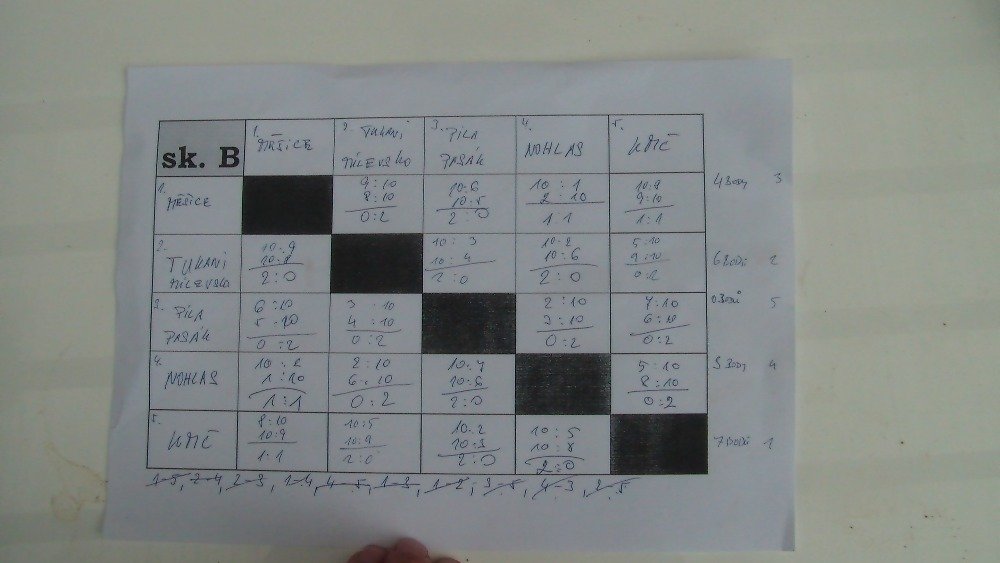 sk. B
1. MĚŠICE
2. TUKANI MILEVSKO
3. PILA PASÁK
4. NOHLAS
5. KMČ
1. MĚŠICE
9:10
8:10
0:2
10:6
10:5
2:0
10:1
2:10
1:1
10:8
9:10
1:1
4 BODY 3
2. TUKANI MILEVSKO
10:9
10:8
2:0
10:3
10:4
2:0
10:2
10:6
2:0
5:10
9:10
0:2
6 BODŮ 2
3. PILA PASÁK
6:10
5:10
0:2
3:10
4:10
0:2
2:10
3:10
0:2
7:10
6:10
0:2
0 BODŮ 5
4. NOHLAS
10:2
1:10
1:1
2:10
6:10
0:2
10:7
10:6
2:0
5:10
8:10
0:2
3 BODY 4
5. KMČ
8:10
10:9
1:1
10:5
10:9
2:0
10:2
10:3
2:0
10:5
10:8
2:0
7 BODŮ 1
1-5, 2-4, 2-3, 1-4, 4-5, 1-3, 1-2, 3-5, 4-3, 2-5